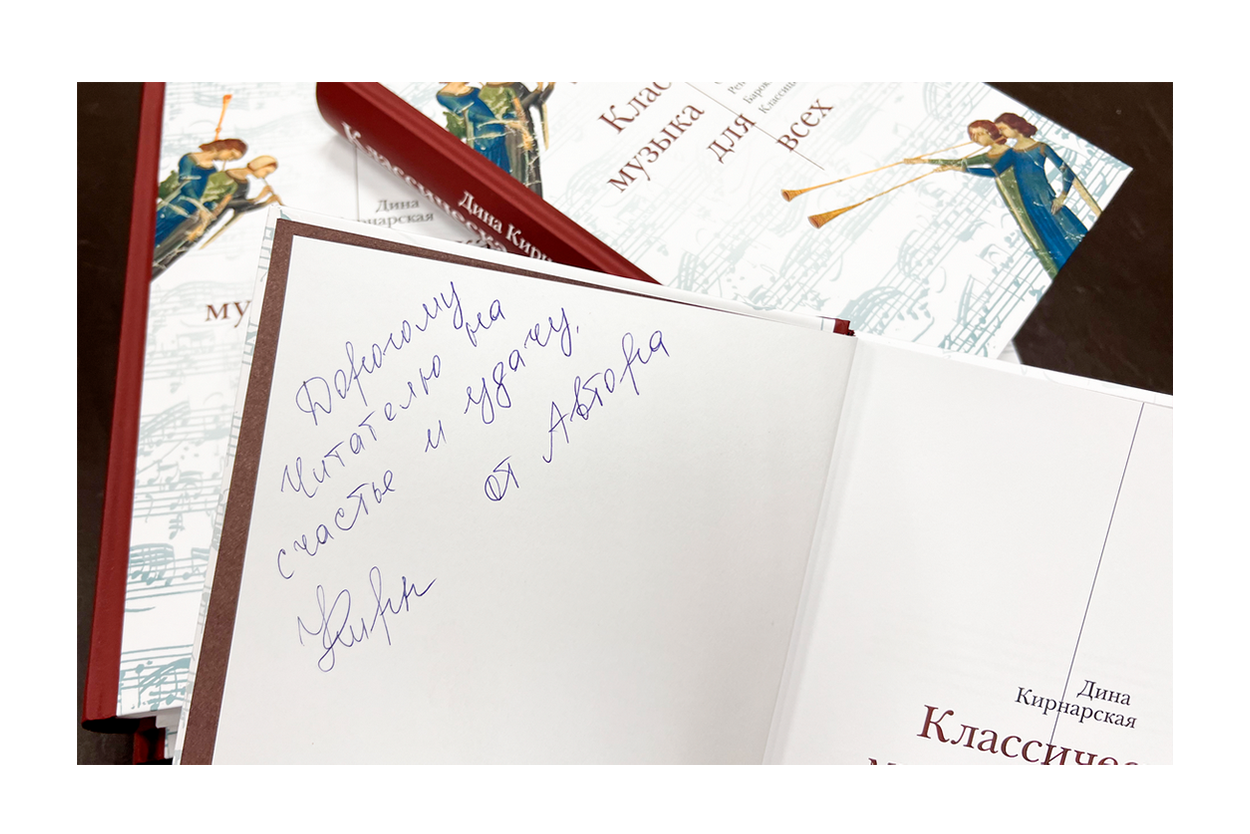 Клас
музыка
для
всех
Барок
Классиц
Классическа
Дина Кирн
Дина
рнарская
му
Дорогому
Читателю на
счастье и удачу.
от Автора
Кирн
Дина
Кирнарская
Классичес